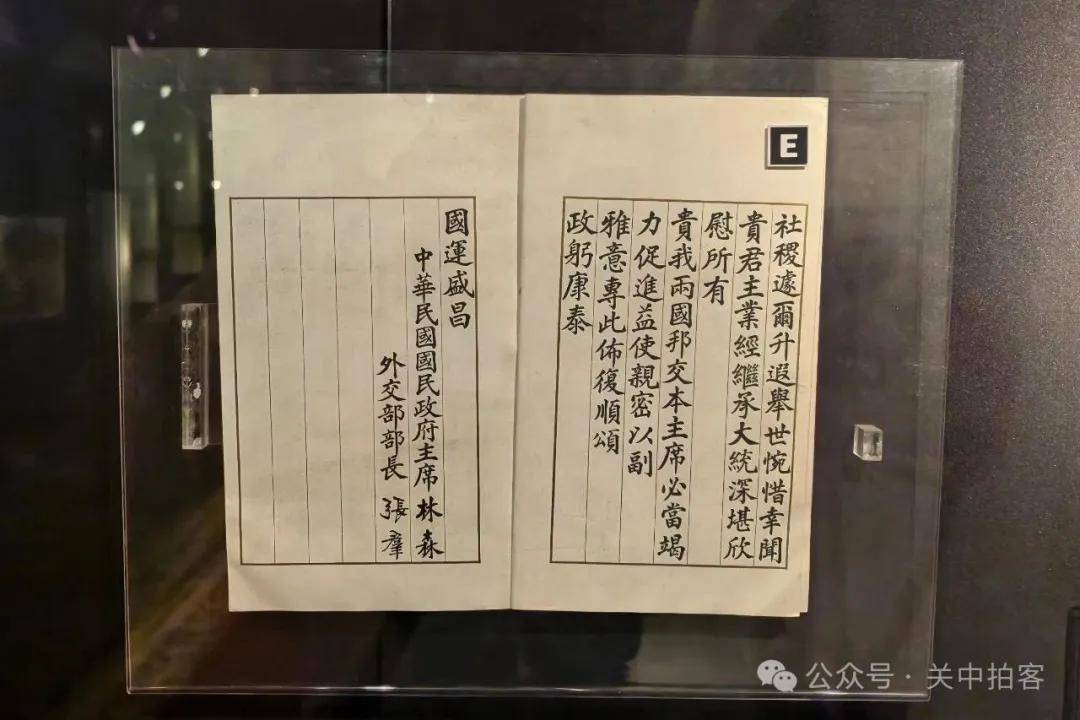 E
社稷遽爾升遐舉世惋惜幸聞
貴君主業經繼承大統深堪欣
慰所有
貴我兩國邦交本主席必當竭
力促進益使親密以副
雅意專此佈復順頌
政躬康泰
國運盛昌
中華民國國民政府主席 林森
外交部部長 張羣
公众号 · 关中拍客